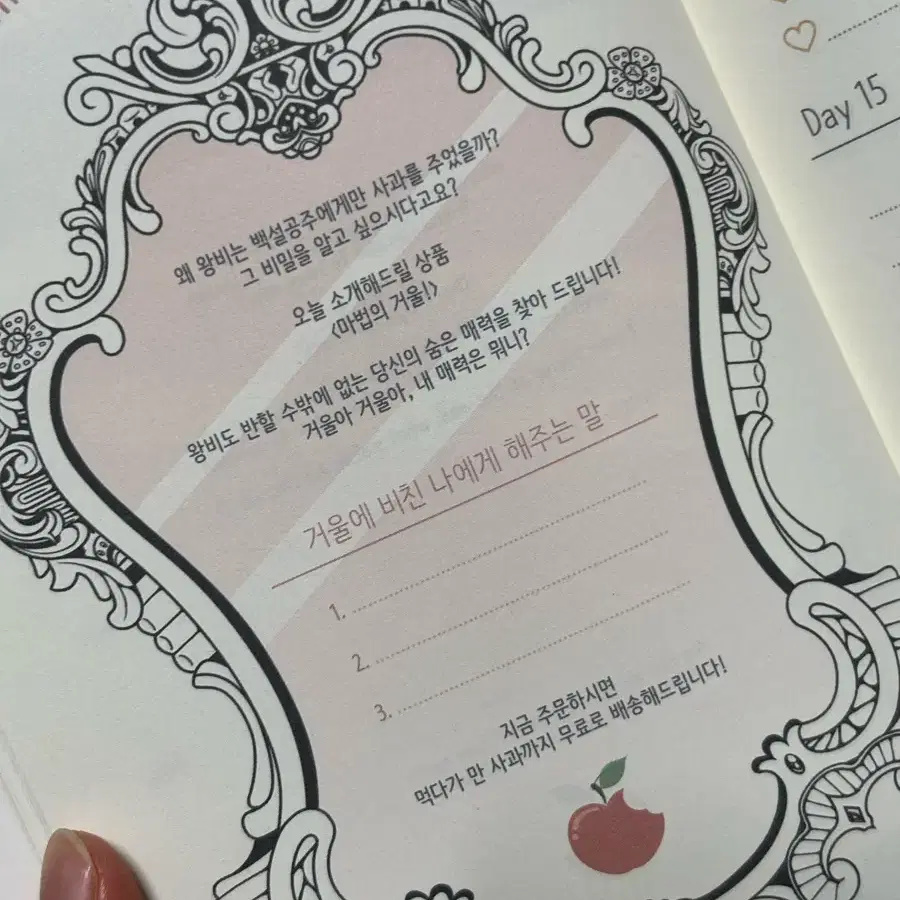 왜 왕비는 백설공주에게만 사과를 주었을까?
그 비밀을 알고 싶으시다고요?
오늘 소개해드릴 상품
<마법의 거울!>
왕비도 반할 수밖에 없는 당신의 숨은 매력을 찾아 드립니다!
거울아 거울아, 내 매력은 뭐니?
거울에 비친 나에게 해주는 말
1.
2.
3.
지금 주문하시면
먹다가 만 사과까지 무료로 배송해드립니다!
Day 15